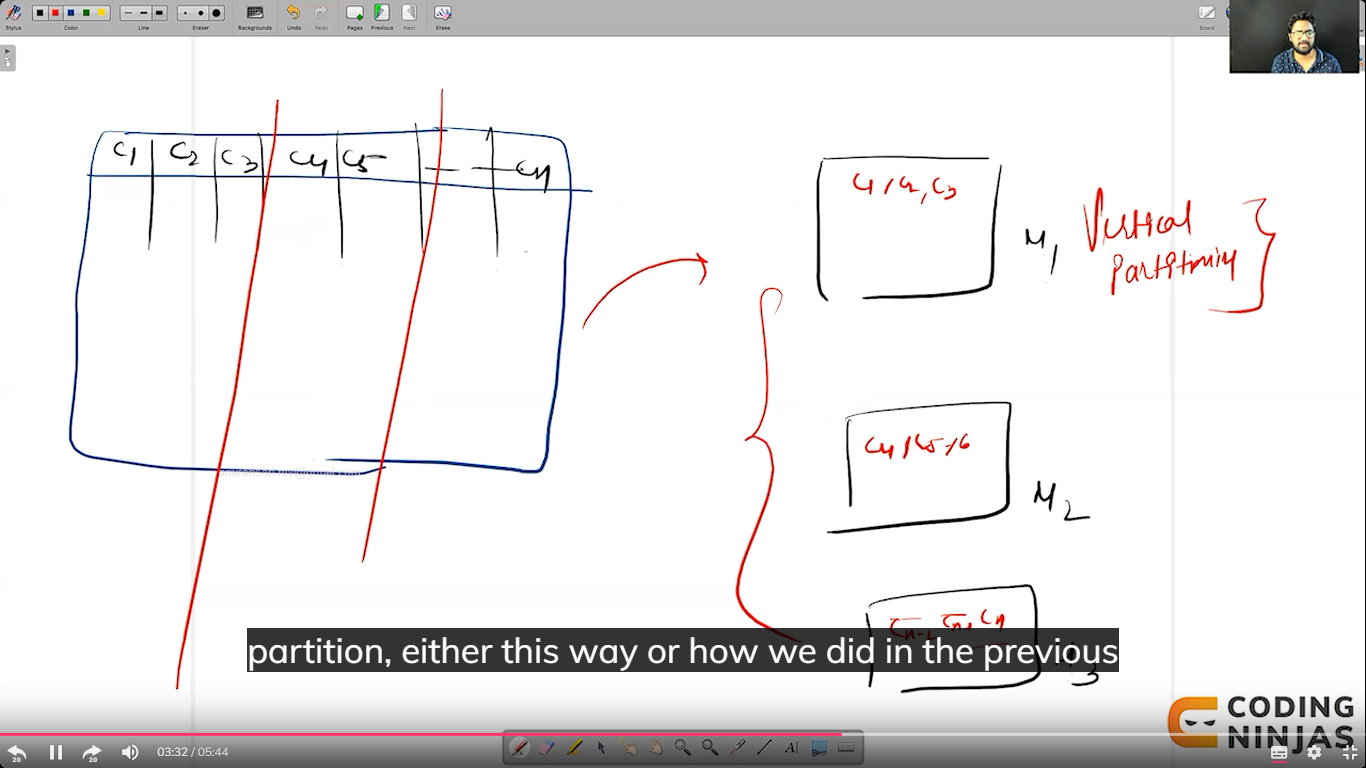 Stylus
Color
Line
Eraser
Backgrounds
Undo
Redo
Pages
Previous
Next
Erase
Board
C1 C2 C3 C4 C5 Cn
C1, C2, C3
M1
Vertical
Partitioning
C4, C5, C6
M2
Cn-2 Cn-1 Cn
partition, either this way or how we did in the previous
3
CODING
NINJAS
20
20
03:32 / 05:44